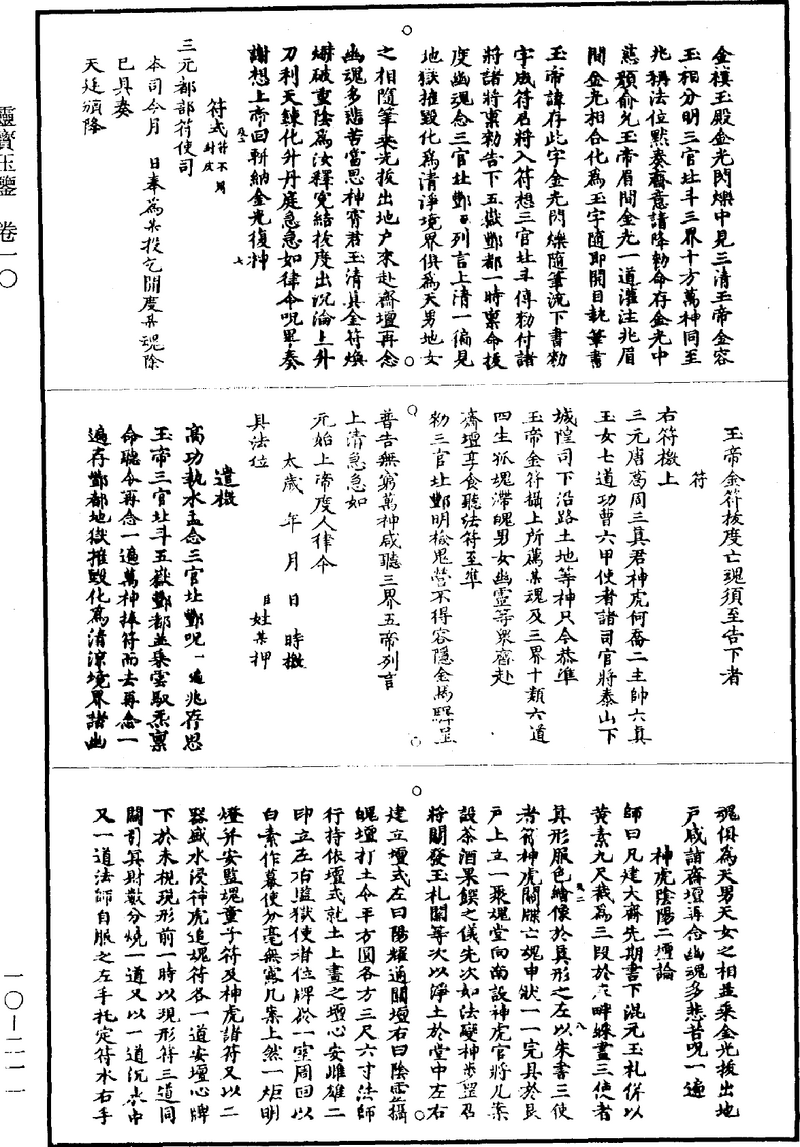 金樓玉殿金光閃爍中見三清玉帝金容
玉相分明三官北斗三界十方萬神同至
兆稱法位默奏齋意請降勑命存金光中
慈顏俞允玉帝眉間金光一道灌注兆眉
間金光相合化為玉字隨即開目執筆書
玉帝諱存此字金光閃爍隨筆流下書勑
字成符召將入符想三官北斗傳勑付諸
將諸將稟勑告下五嶽酆都一時稟命拔
度幽魂念三官北酆列言上清一徧見
地獄摧毀化為清淨境界俱為天男地女
之相隨筆乘光拔出地户來赴齋壇再念
幽魂多諸苦當思神霄君玉清真金符煥
爛破重陰為汝釋冤結拔度出沉淪上升
刀利天鍊化升丹庭急急如律令呪畢奏
謝想上帝回軿納金光復神
符式符不用封皮
三元都部符使司
本司今月　日奉為某投乞關度某魂除
已具奏
天廷頒降
靈寶玉鑒　卷一〇
玉帝金符拔度亡魂須至告下者
符
右符檄上
三元唐葛周三真君神虎何喬二主帥六真
玉女七道功曹六甲使者諸司官將泰山下
城隍司下沿路土地等神只今恭準
玉帝金符攝上所薦某魂及三界十類六道
四生孤魂滯魄男女幽靈等衆齋赴
齋壇享食聽法符至準
勑三官北酆明檢鬼營不得容隱金馬驛呈
普告無窮萬神咸聽三界五帝列言
上清急急如
元始上帝度人律令
太歲　年　月　日　時檄
具法位　　　　姓某押
遣檄
高功執水盂念三官北酆呪一遍兆存思
玉帝三官北斗五嶽酆都並集雲馭炁稟
命聽令再念一遍萬神捧符而去再念一
遍存酆都地獄摧毀化為清涼境界諸幽
魂俱為天男天女之相並乘金光拔出地
户咸詣齋壇再念幽魂多悲苦呪一遍
神虎陰陽二壇論
師曰凡建大齋先期書下混元玉札併以
黃素九尺裁為三段於上畔綵畫三使者
真形服色繪像於真形之左以朱書三使
者符神虎關牒亡魂申狀一一完具於艮
户上立一聚魂堂向南設神虎官將几案
設茶酒果饌之儀先次如法變神步罡召
將關發玉札關等次以淨土於堂中左右
建立壇式左曰陽耀通關壇右曰陰靈攝
魄壇打土令平方圓各方三尺六寸法師
行持依壇式就土上畫之壇心安雌雄二
印立左右監獄使者位牌於一室周回以
白素作幕使分毫無窺几案上然一炬明
燈并安監魂童子符及神虎諸符又以二
器盛水浸神虎追魂符各一道安壇心牌
下於未視現形前一時以現形符三道同
關引冥財散分燒一道又以一道沉水中
又一道法師自服之左手托定符水右手
一〇—二一一